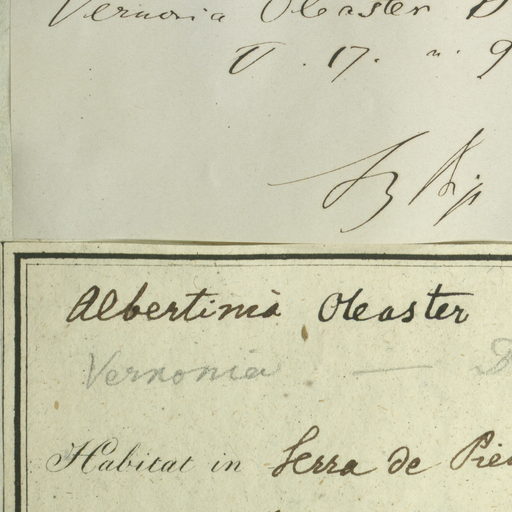 Vernonia Oleaster D
V. 17. n. 9
Sz Bip
Albertinia Oleaster
Vernonia — D
Habitat in Serra de Pie